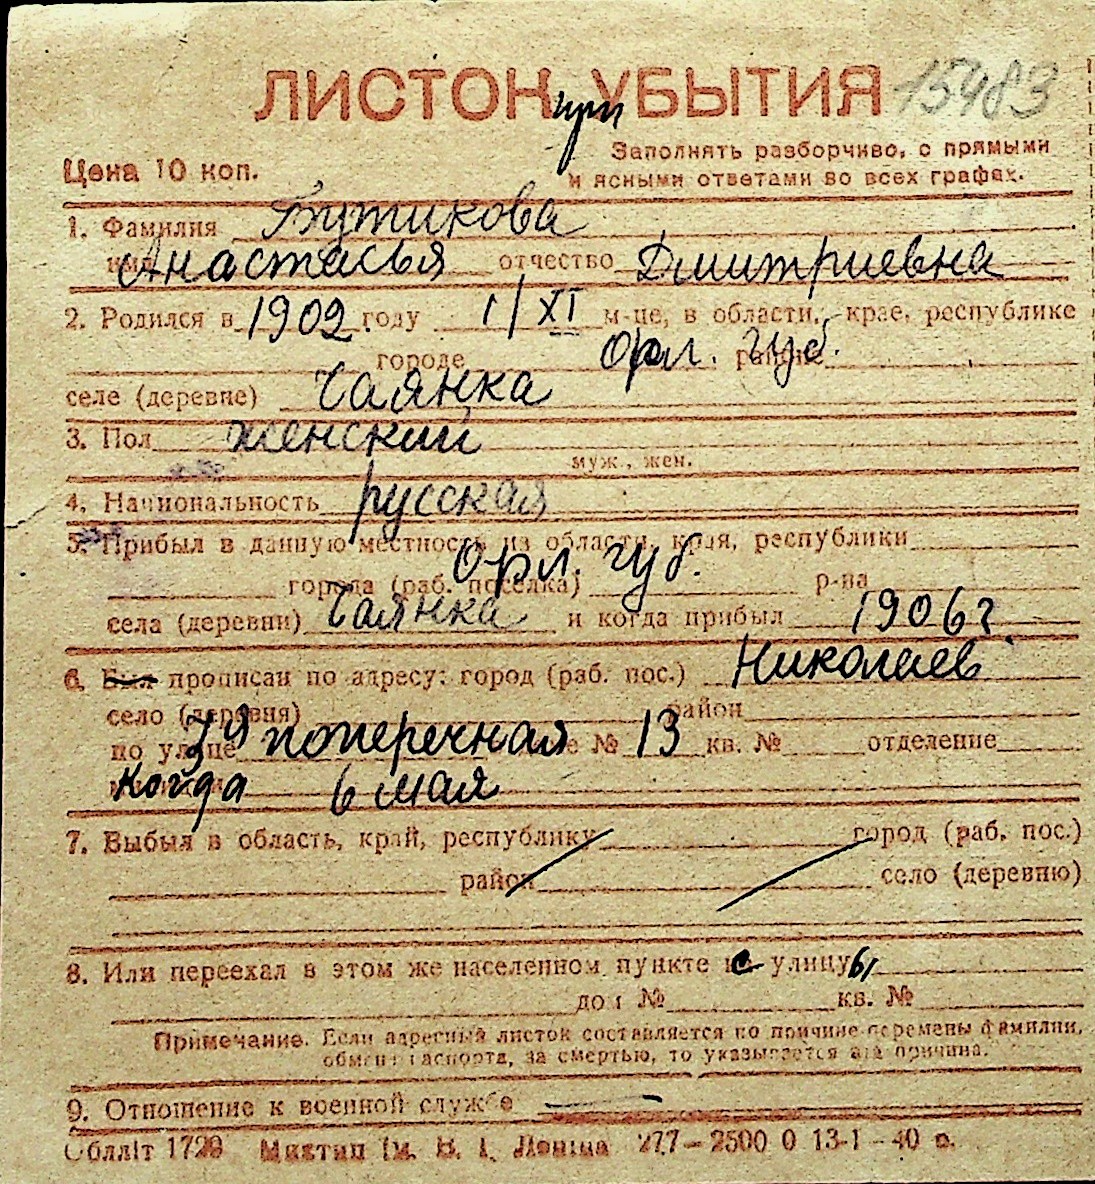 ЛИСТОК УБЫТИЯ 15483
при
Заполнять разборчиво, с прямыми
Цена 10 коп. и ясными ответами во всех графах.
1. Фамилия Бутикова
имя Анастасья отчество Дмитриевна
2. Родился в 1902 году 1/XI м-це, в области, крае, республике
городе Орл. губ. районе
селе (деревне) Чаянка
3. Пол женский
муж., жен.
4. Национальность русская
5. Прибыл в данную местность из области, края, республики
Орл. губ.
города (раб. поселка) р-на
села (деревни) Чаянка и когда прибыл 1906 г
6. Был прописан по адресу: город (раб. пос.) Николаев
село (деревня) район
по улице 7я поперечная № 13 кв. № отделение
когда 6 мая
7. Выбыл в область, край, республику город (раб. пос.)
район село (деревню)
8. Или переехал в этом же населенном пункте с улицы
дом № кв. №
Примечание. Если адресный листок составляется по причине перемены фамилии,
обмена паспорта, за смертью, то указывается эта причина.
9. Отношение к военной службе
Обллiт 1729 Миктип iм. В. I. Ленiна 277—2500 0 13-1-40 р.